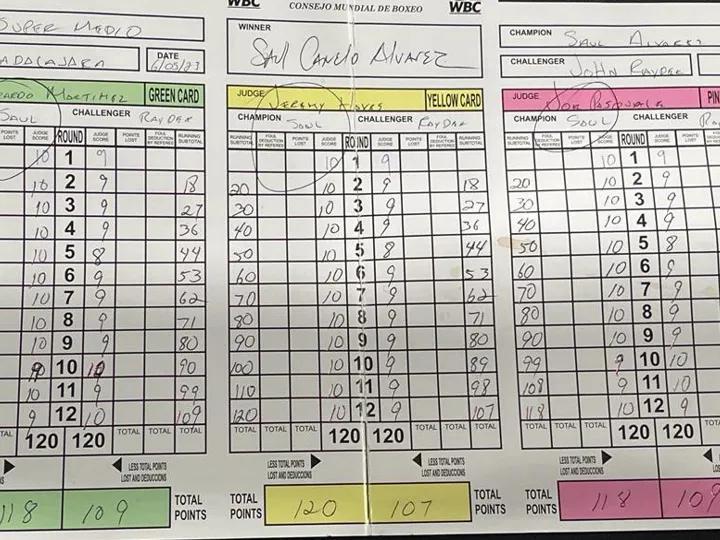 WBC CONSEJO MUNDIAL DE BOXEO WBC
SUPER MEDIO
ADALAJARA
DATE
6/05/23
ARDO MARTINEZ GREEN CARD
SAUL
CHALLENGER RAYDER
POINTS LOST JUDGE SCORE ROUND JUDGE SCORE POINTS LOST FOUL DEDUCTION BY REFEREE RUNNING SUBTOTAL
10 1 9
10 2 9 18
10 3 9 27
10 4 9 36
10 5 8 44
10 6 9 53
10 7 9 62
10 8 9 71
10 9 9 80
9 10 10 90
10 11 9 99
9 12 10 109
TOTAL 120 120 TOTAL TOTAL TOTAL
LESS TOTAL POINTS
LOST AND DEDUCCIONS
118 109 TOTAL POINTS
WINNER
SAUL CANELO ALVAREZ
JUDGE JEREMY HAYES YELLOW CARD
CHAMPION SAUL CHALLENGER RAYDER
RUNNING SUBTOTAL FOUL DEDUCTION BY REFEREE POINTS LOST JUDGE SCORE ROUND JUDGE SCORE POINTS LOST FOUL DEDUCTION BY REFEREE RUNNING SUBTOTAL
10 1 9
20 10 2 9 18
30 10 3 9 27
40 10 4 9 36
50 10 5 8 44
60 10 6 9 53
70 10 7 9 62
80 10 8 9 71
90 10 9 9 80
100 10 10 9 89
110 10 11 9 98
120 10 12 9 107
TOTAL TOTAL TOTAL 120 120 TOTAL TOTAL TOTAL
LESS TOTAL POINTS
LOST AND DEDUCCIONS
LESS TOTAL POINTS
LOST AND DEDUCCIONS
TOTAL POINTS 120 107 TOTAL POINTS
CHAMPION SAUL ALVAREZ
CHALLENGER JOHN RAYDER
JUDGE PIN
CHAMPION SAUL CHALLENGER
RUNNING SUBTOTAL FOUL DEDUCTION BY REFEREE POINTS LOST JUDGE SCORE ROUND JUDGE SCORE POINTS LOST
10 1 9
20 10 2 9
30 10 3 9
40 10 4 9
50 10 5 8
60 10 6 9
70 10 7 9
80 10 8 9
90 10 9 9
99 9 10 10
108 9 11 10
118 10 12 9
TOTAL TOTAL TOTAL 120 120 TOTAL
LESS TOTAL POINTS
LOST AND DEDUCCIONS
TOTAL POINTS 118 109